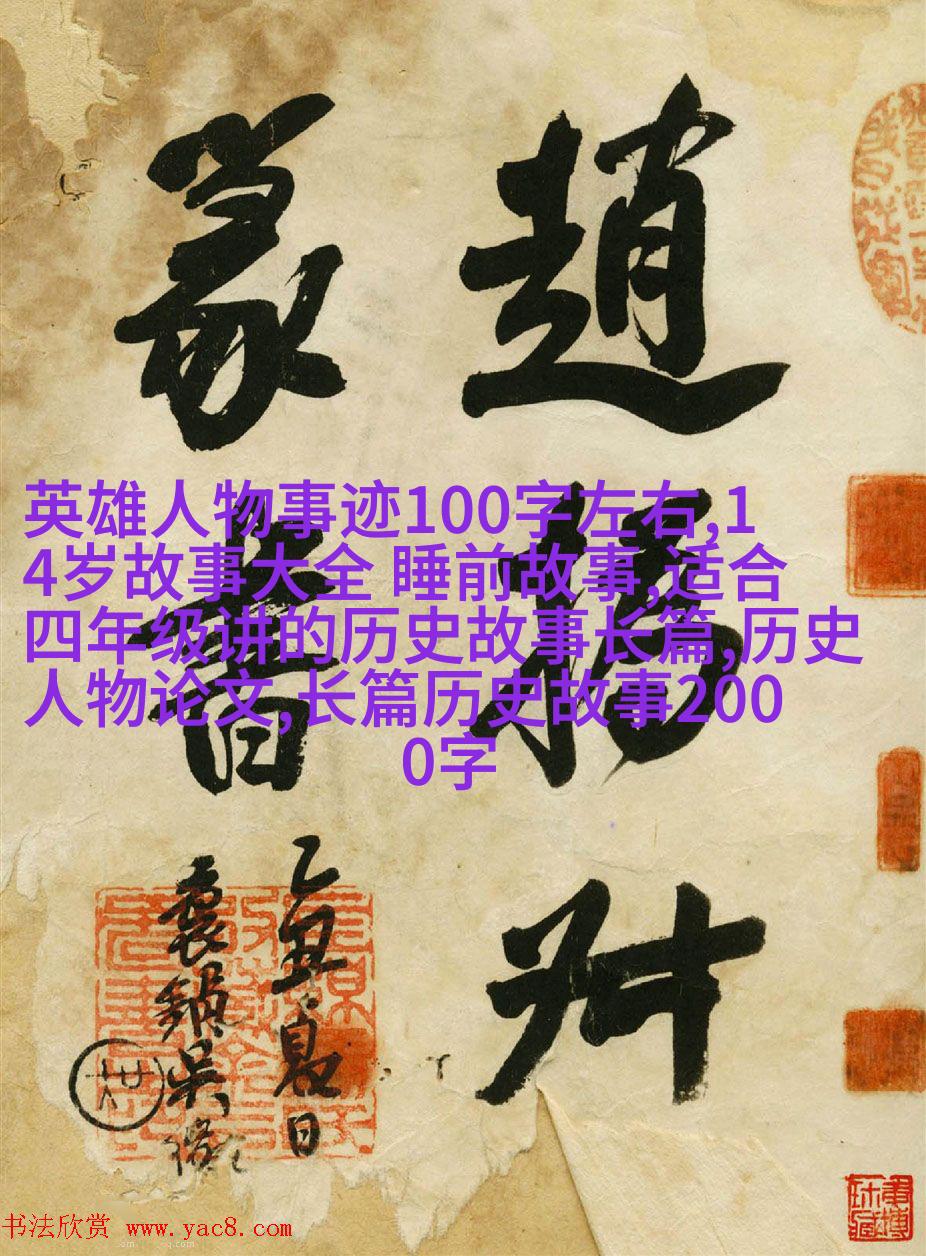 趙撝叔
篆書
乙亥夏日
英雄人物事迹100字左右,1
4岁故事大全 睡前故事,适合
四年级讲的历史故事长篇,历史
人物论文,长篇历史故事200
0字
书法欣赏 www.yac8.com